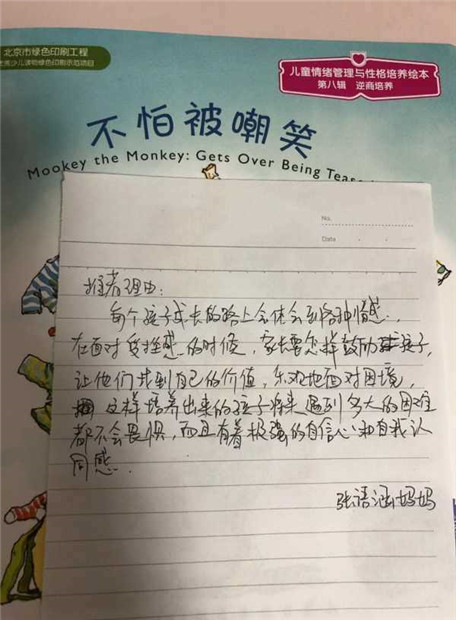 北京市绿色印刷工程
优秀青少儿读物绿色印刷示范项目
儿童情绪管理与性格培养绘本
第八辑 逆商培养
不怕被嘲笑
Mookey the Monkey: Gets Over Being Teased
No.
Date
推荐理由:
每个孩子成长的路上会体会到各种情感.
在面对挫折感的时候,家长要怎样鼓励孩子,
让他们找到自己的价值,乐观地面对困境,
这样培养出来的孩子将来遇到多大的困难
都不会畏惧,而且有着极强的自信心和自我认
同感.
张语涵妈妈